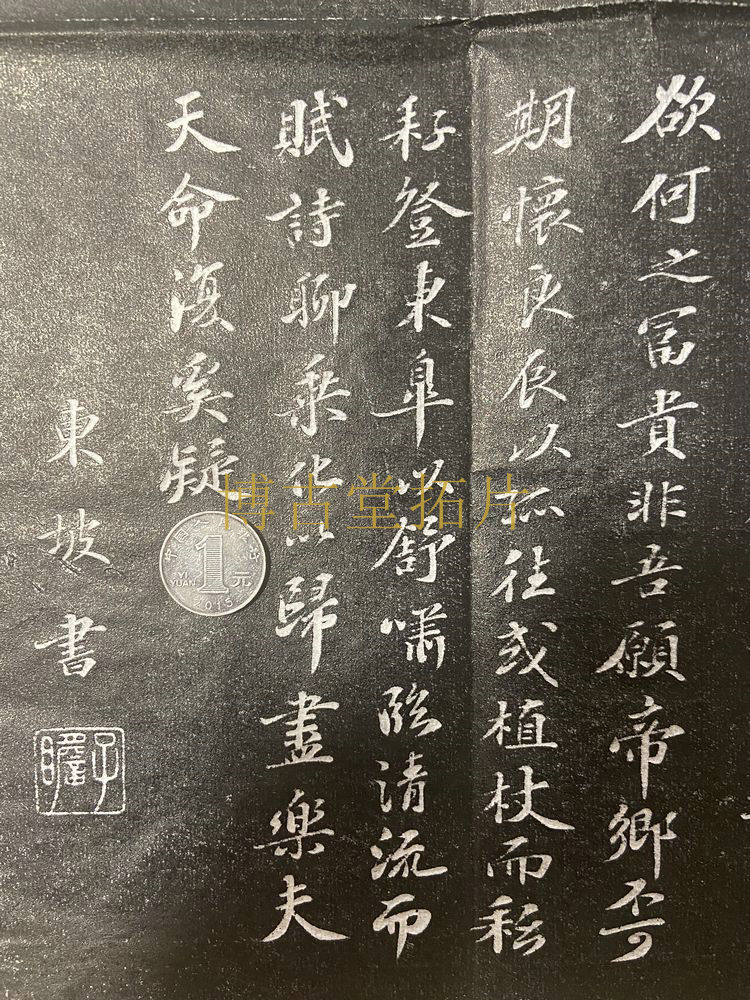 欲何之富貴非吾願帝鄉不可
期懷良辰以孤往或植杖而耘
耔登東皋以舒嘯臨清流而
賦詩聊乘化以歸盡樂夫
天命復奚疑
東坡書
子瞻
博古堂拓片
1元
YI YUAN
2015